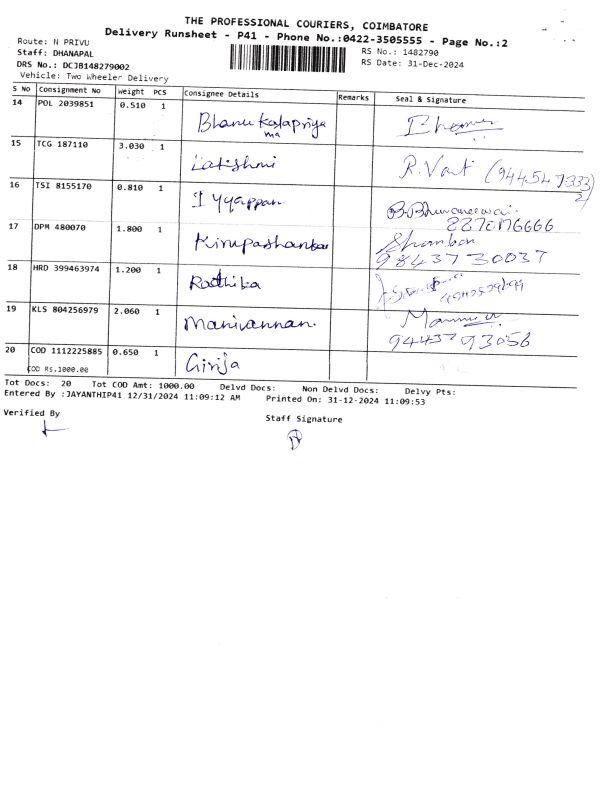 THE PROFESSIONAL COURIERS, COIMBATORE
Delivery Runsheet - P41 - Phone No.:0422-3505555 - Page No.:2
Route: N PRIVU
RS No.: 1482790
Staff: DHANAPAL
RS Date: 31-Dec-2024
DRS No.: DCJB148279002
Vehicle: Two Wheeler Delivery
S No Consignment No Weight PCS Consignee Details Remarks Seal & Signature
14 POL 2039851 0.510 1 Bhanu Kalapriya
ma
15 TCG 187110 3.030 1 Latishmi R. Vart
16 TSI 8155170 0.810 1 Iyyappan B. Bhuvaneswai
17 DPM 480070 1.800 1 Kirupashankar Shanban
98437 30037
18 HRD 399463974 1.200 1 Radhika
19 KLS 804256979 2.060 1 Manivannan
94437 93056
20 COD 1112225885 0.650 1 Girija
COD RS.1000.00
Tot Docs: 20 Tot COD Amt: 1000.00 Delvd Docs: Non Delvd Docs: Delvy Pts:
Entered By :JAYANTHIP41 12/31/2024 11:09:12 AM Printed On: 31-12-2024 11:09:53
Verified By
Staff Signature